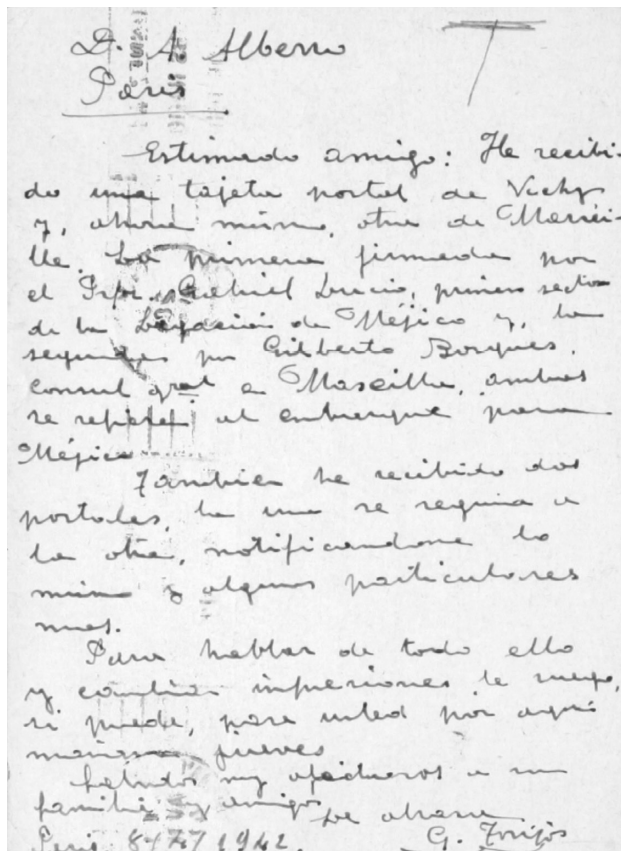 D. A. Alberro
Paris
Estimado amigo: He recibi-
do una tajeta postal de Vichy
y, ahora mismo, otra de Marsei-
lle. La primera firmada por
el Prfr. Gabriel Lucio, primer sectro
de la Legación de Méjico y, la
segunda por Gilberto Bosques,
Consul gral en Marseille, ambas
se refieren al embarque para
Méjico
Tambien he recibido dos
postales, la una se seguia a
la otra, notificandome lo
mismo y algunos particulares
mas.
Para hablar de todo ello
y cambiar impresiones le ruego,
si puede, pase usted por aqui
mañana jueves
Saludos muy afectuosos a su
familia y amigos
Le abraza
Paris 8/7/1942. G. Torrijos